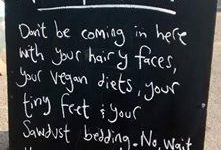 Don't be coming in here
with your hairy faces,
your vegan diets, your
tiny feet & your
Sawdust bedding. No, wait